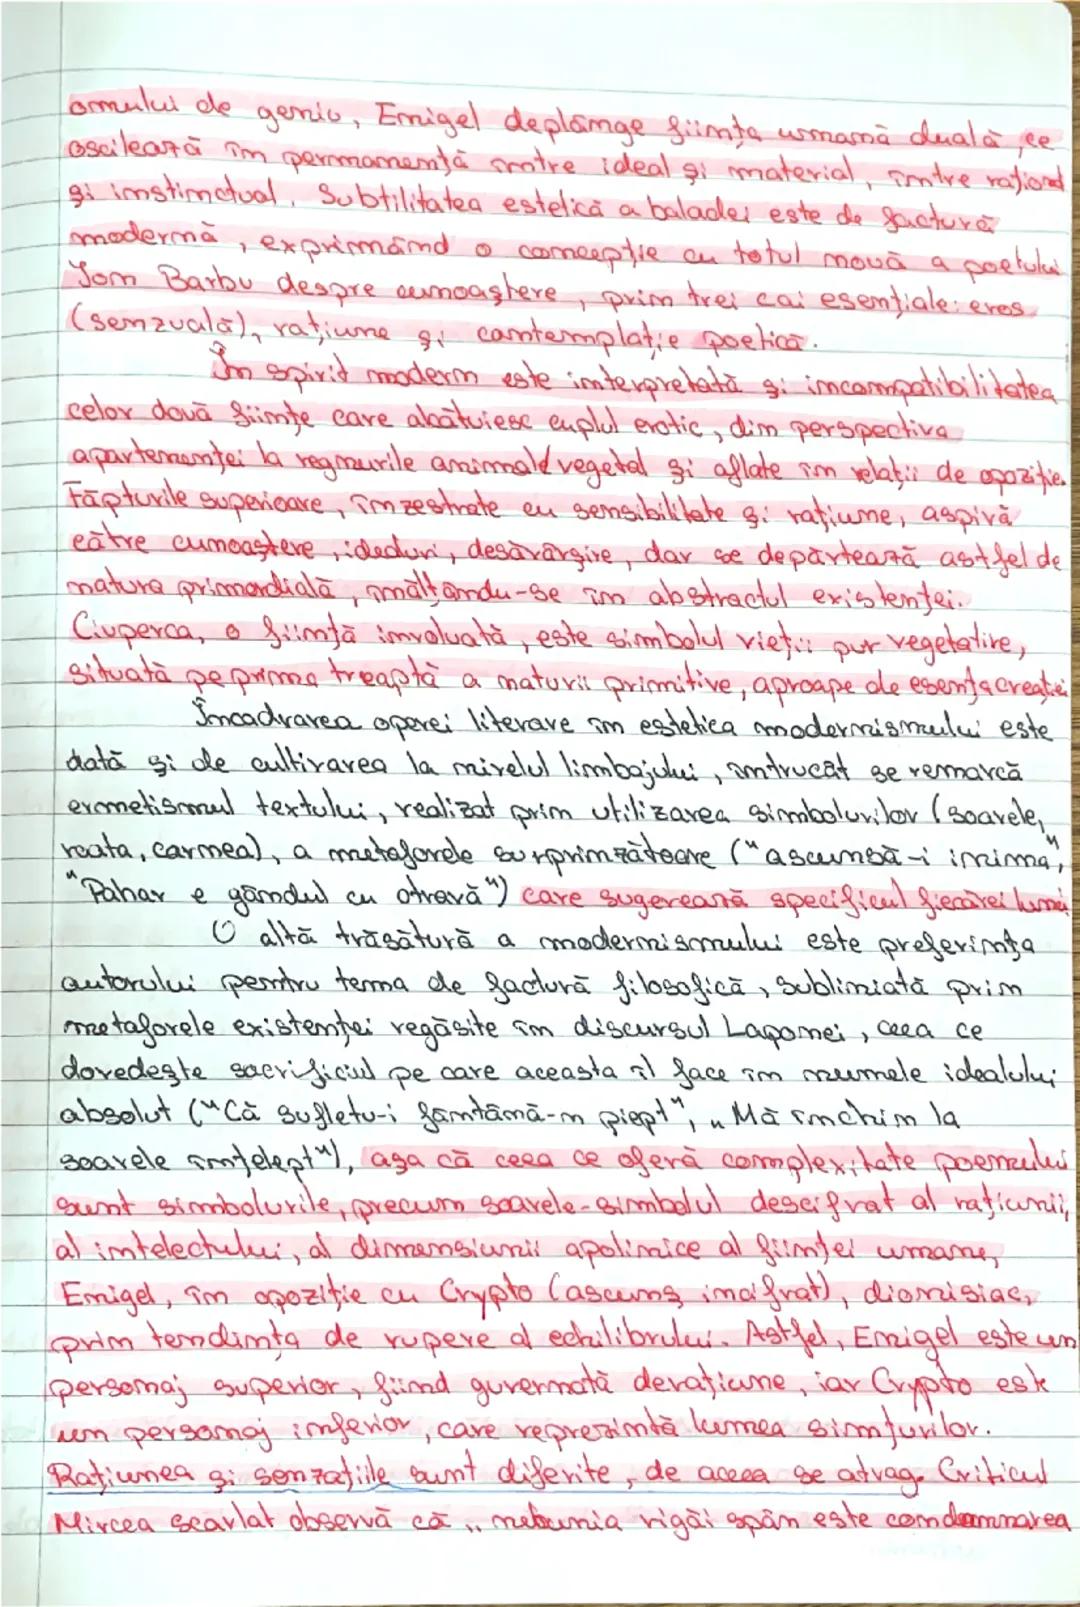 omului de geniu, Enigel deplânge ființa umană duală, ce
oscilează în permanență între ideal și material, între rațional
și instinctual. Subtilitatea estetică a baladei este de factură
modernă, exprimând o concepție cu totul nouă a poetului
Ion Barbu despre cunoaștere, prin trei căi esențiale: eros
(senzuală), rațiune și contemplație poetică.
În spirit modern este interpretată și incompatibilitatea
celor două ființe care alcătuiesc cuplul erotic, din perspectiva
apartenenței la regnurile animal/vegetal și aflate în relații de opoziție.
Făpturile superioare, înzestrate cu sensibilitate și rațiune, aspiră
către cunoaștere, idealuri, desăvârșire, dar se depărtează astfel de
natura primordială, înălțându-se în abstractul existenței.
Ciuperca, o ființă involuată, este simbolul vieții pur vegetative,
situată pe prima treaptă a naturii primitive, aproape de esența creației
Încadrarea operei literare în estetica modernismului este
dată și de cultivarea la nivelul limbajului, întrucât se remarcă
ermetismul textului, realizat prin utilizarea simbolurilor (soarele,
roata, carnea), a metaforele surprinzătoare ("ascunsă-i inima",
"Pahar e gândul cu otravă") care sugerează specificul fiecărei lumi
O altă trăsătură a modernismului este preferința
autorului pentru tema de factură filosofică, subliniată prin
metaforele existenței regăsite în discursul Laponei, ceea ce
dovedește sacrificiul pe care aceasta îl face în numele idealului
absolut ("Că sufletu-i fântână-n piept", „Mă închin la
soarele înțelept"), așa că ceea ce oferă complexitate poemului
sunt simbolurile, precum soarele-simbolul descifrat al rațiunii,
al intelectului, al dimensiunii apolinice al ființei umane,
Enigel, în opoziție cu Crypto (ascuns, incifrat), dionisiac,
prin tendința de rupere al echilibrului. Astfel, Enigel este un
personaj superior, fiind guvernată de rațiune, iar Crypto este
un personaj inferior, care reprezintă lumea simțurilor.
Rațiunea și senzațiile sunt diferite, de aceea se atrag. Criticul
Mircea Scarlat observă că „nebunia rigăi spân este condamnarea